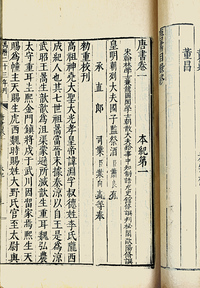 董昌
唐書卷一 本紀第一
宋翰林學士兼龍圖閣學士朝散大夫給事中知制誥充史館修撰判秘閣歐陽脩撰
皇明朝列大夫國子監祭酒臣蕭良有
承直郎司業臣葉向高等奉
勅重校刊
高祖神堯大聖大光孝皇帝諱淵字叔德姓李氏隴西
成紀人也其七世祖暠當晉末據秦涼以自王是為涼
武昭王暠生歆歆為沮渠蒙遜所滅歆生重耳魏弘農
太守重耳生熙金門鎮將戍于武川因留家焉熙生天
賜為幢主天賜生虎西魏時賜姓大野氏官至太尉與
萬曆二十三年刊